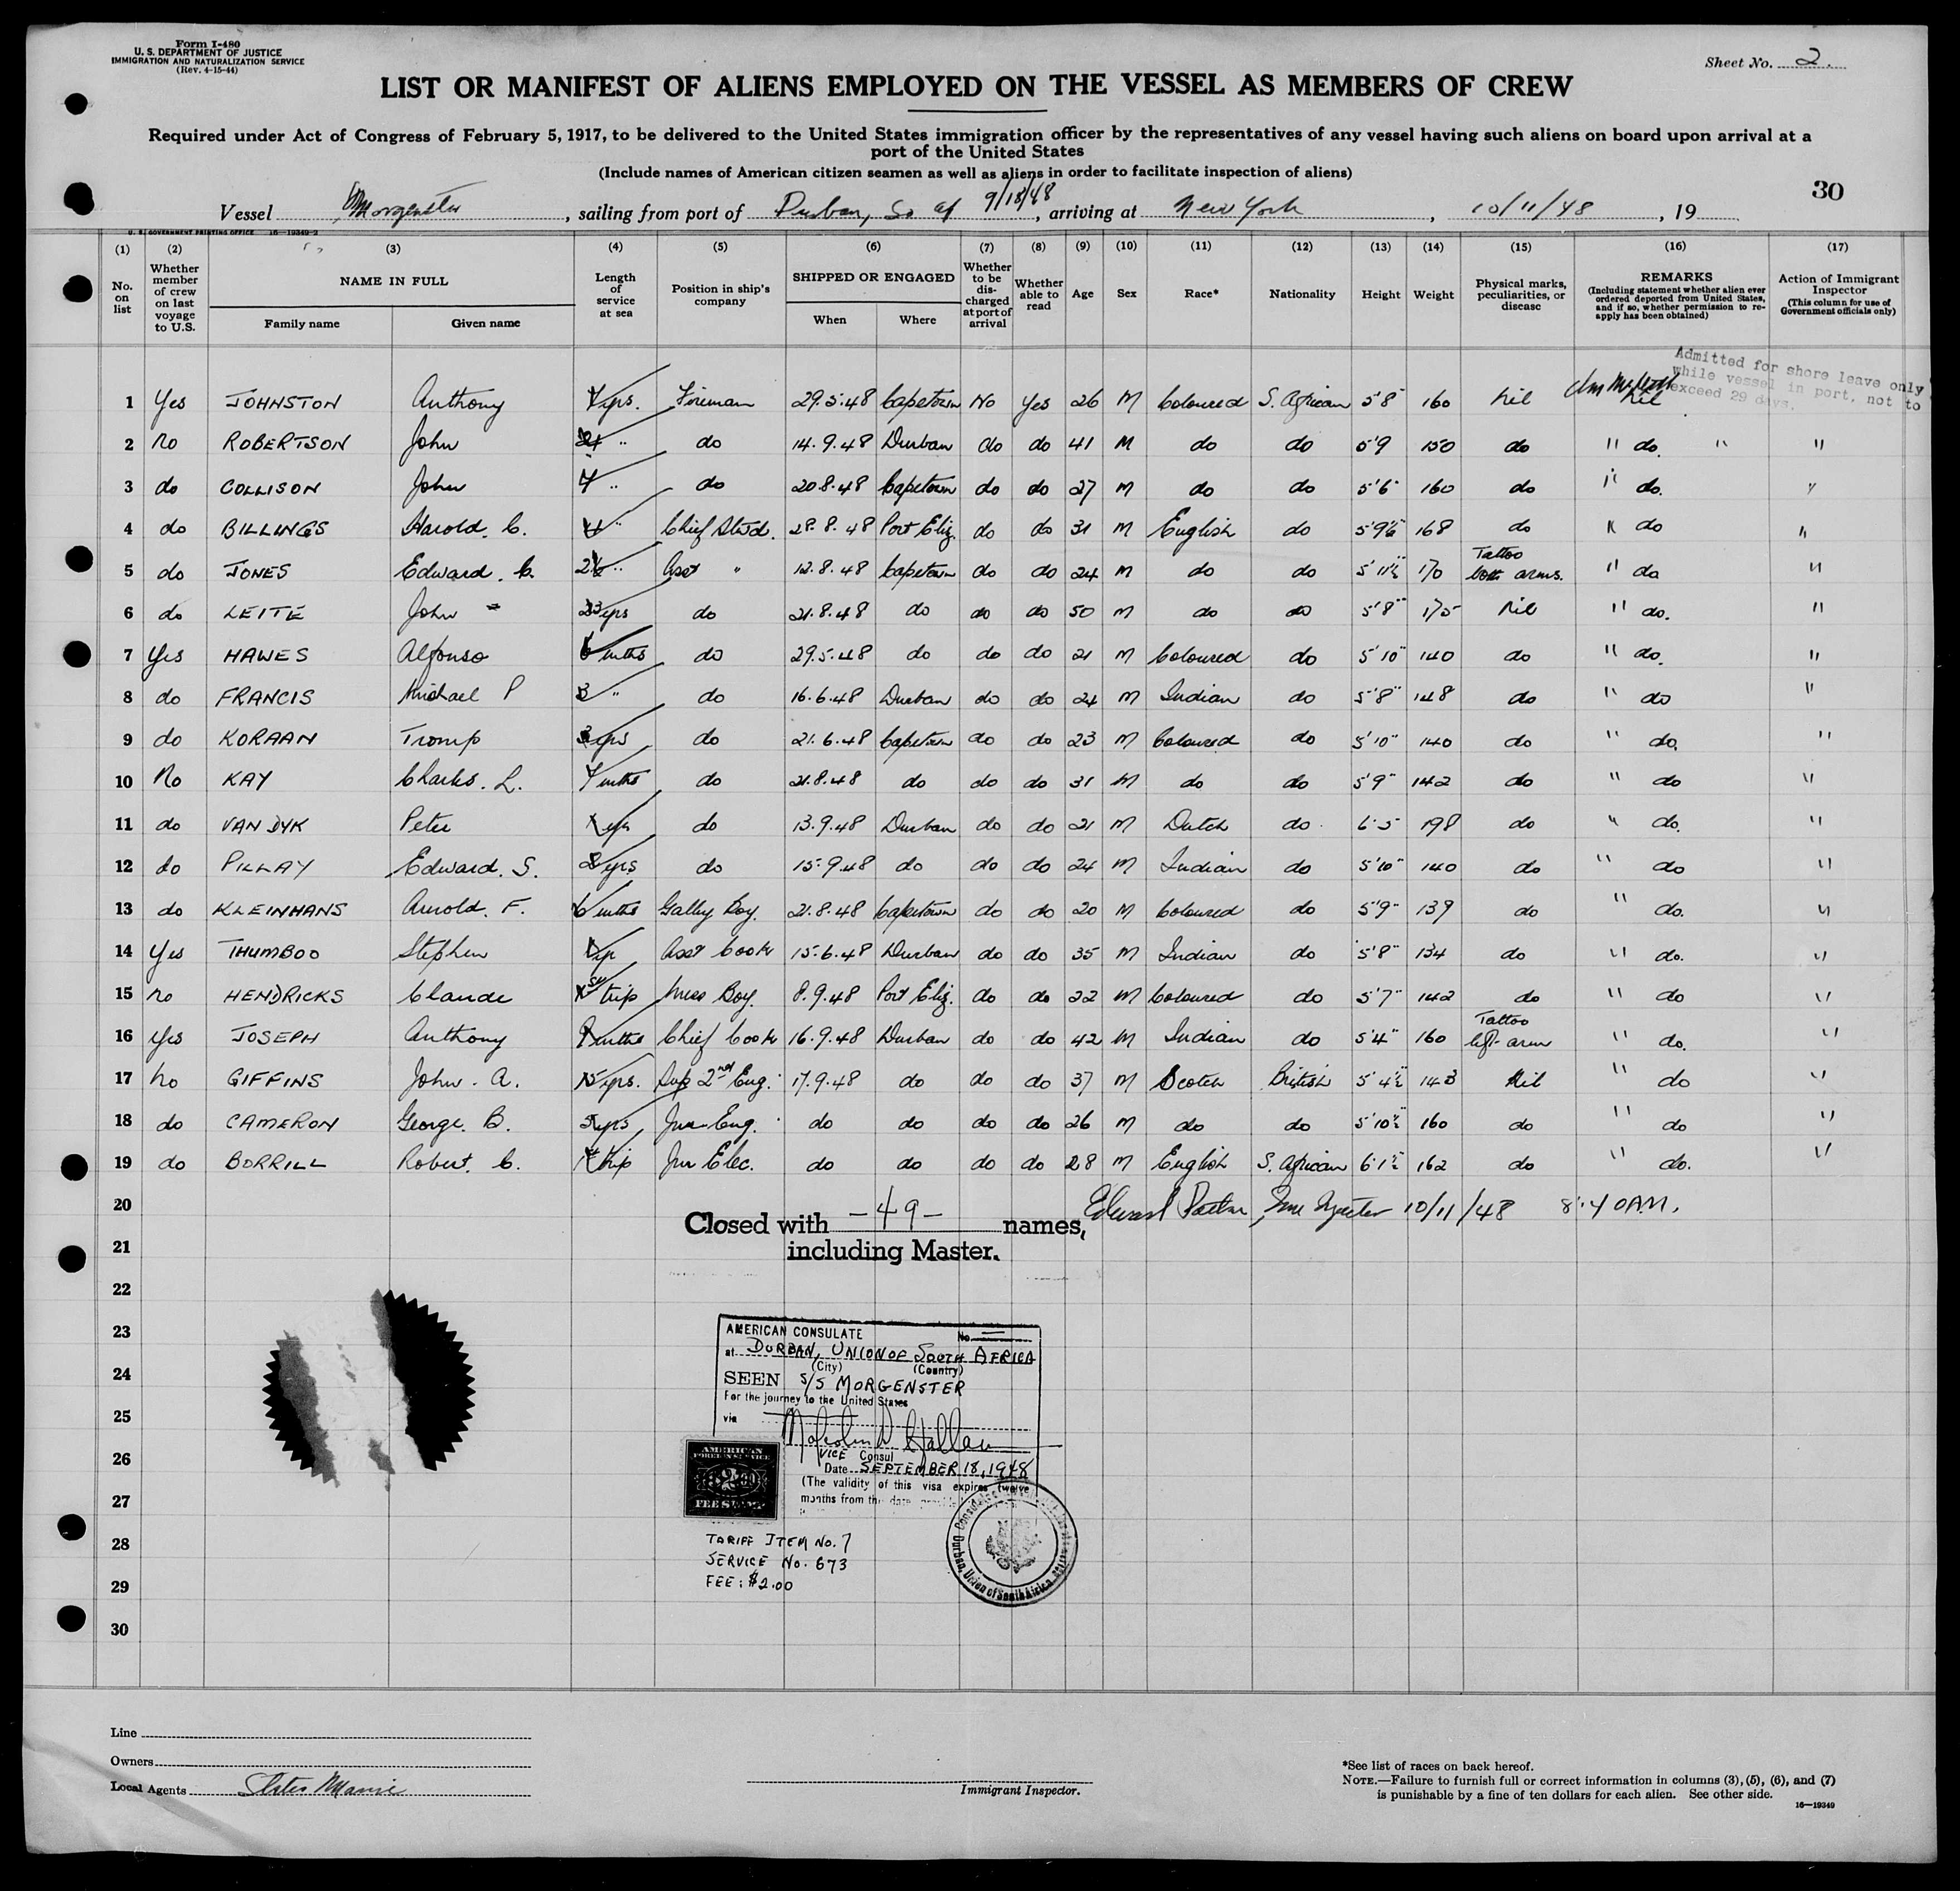 Form I-480
U. S. DEPARTMENT OF JUSTICE
IMMIGRATION AND NATURALIZATION SERVICE
(Rev. 4-15-44)
Sheet No. 2.
LIST OR MANIFEST OF ALIENS EMPLOYED ON THE VESSEL AS MEMBERS OF CREW
Required under Act of Congress of February 5, 1917, to be delivered to the United States immigration officer by the representatives of any vessel having such aliens on board upon arrival at a
port of the United States
(Include names of American citizen seamen as well as aliens in order to facilitate inspection of aliens)
30
Vessel Morgenster, sailing from port of Durban, So Af 9/18/48, arriving at New York, 10/11/48, 19
U. S. GOVERNMENT PRINTING OFFICE 16—19349-2
(1) (2) (3) (4) (5) (6) (7) (8) (9) (10) (11) (12) (13) (14) (15) (16) (17)
No. on list
Whether member of crew on last voyage to U.S.
NAME IN FULL
Family name Given name
Length of service at sea
Position in ship's company
SHIPPED OR ENGAGED
When Where
Whether to be discharged at port of arrival
Whether able to read
Age
Sex
Race*
Nationality
Height
Weight
Physical marks, peculiarities, or disease
REMARKS
(Including statement whether alien ever ordered deported from United States, and if so, whether permission to re-apply has been obtained)
Action of Immigrant Inspector
(This column for use of Government officials only)
Admitted for shore leave only
while vessel in port, not to
exceed 29 days.
1 Yes JOHNSTON Anthony yrs. Fireman 29.5.48 Capetown No Yes 26 M Coloured S. African 5'8" 160 Nil Nil
2 no ROBERTSON John " do 14.9.48 Durban do do 41 M do do 5'9 150 do " do. " "
3 do COLLISON John " do 20.8.48 Capetown do do 27 M do do 5'6" 160 do " do. "
4 do BILLINGS Harold. C. " Chief Stwd. 28.8.48 Port Eliz. do do 31 M English do 5'9½" 168 do " do "
5 do JONES Edward. C. " Asst " 12.8.48 Capetown do do 24 M do do 5'11½ 170 Tattoo both arms. " do "
6 do LEITE John 23 yrs do 21.8.48 do do do 50 M do do 5'8" 175 Nil " do. "
7 Yes HAWES Alfonso 6 mths do 29.5.48 do do do 21 M Coloured do 5'10" 140 do " do. "
8 do FRANCIS Michael P 3 " do 16.6.48 Durban do do 24 M Indian do 5'8" 148 do " do "
9 do KORAAN Tromp yrs do 21.6.48 Capetown do do 23 M Coloured do 5'10" 140 do " do. "
10 No KAY Charles. L. mths do 21.8.48 do do do 31 M do do 5'9" 142 do " do "
11 do VAN DYK Peter yr do 13.9.48 Durban do do 21 M Dutch do 6'5 198 do " do. "
12 do PILLAY Edward. S. yrs do 15.9.48 do do do 24 M Indian do 5'10" 140 do " do "
13 do KLEINHANS Arnold. F. 6 mths Galley Boy. 21.8.48 Capetown do do 20 M Coloured do 5'9" 139 do " do. "
14 Yes THUMBOO Stephen yr Asst Cook 15.6.48 Durban do do 35 M Indian do 5'8" 134 do " do. "
15 no HENDRICKS Claude 1st trip Mess Boy. 8.9.48 Port Eliz. do do 22 M Coloured do 5'7" 142 do " do "
16 Yes JOSEPH Anthony mths Chief Cook 16.9.48 Durban do do 42 M Indian do 5'4" 160 Tattoo left arm " do. "
17 no GIFFINS John. A. 15 yrs. Sup 2nd Eng. 17.9.48 do do do 37 M Scotch British 5'4½" 143 Nil " do "
18 do CAMERON George. B. 5 yrs Jnr Eng. do do do do 26 M do do 5'10½" 160 do " do "
19 do BORRILL Robert. C. 1st trip Jnr Elec. do do do do 28 M English S. African 6'1½" 162 do " do. "
20
Closed with -49- names,
including Master.
10/11/48 8:40 AM.
21
22
23
24
25
26
27
28
29
30
AMERICAN CONSULATE No.
at DURBAN, UNION OF SOUTH AFRICA
(City) (Country)
SEEN S/S MORGENSTER
For the journey to the United States
via
VICE Consul
Date SEPTEMBER 18, 1948
(The validity of this visa expires twelve
months from the date
AMERICAN
FOREIGN SERVICE
FEE STAMP
TARIFF ITEM No. 7
SERVICE No. 673
FEE: $2.00
Durban, Union of South Africa
Line
Owners
Local Agents
Immigrant Inspector.
*See list of races on back hereof.
NOTE.—Failure to furnish full or correct information in columns (3), (5), (6), and (7)
is punishable by a fine of ten dollars for each alien. See other side.
16—19349